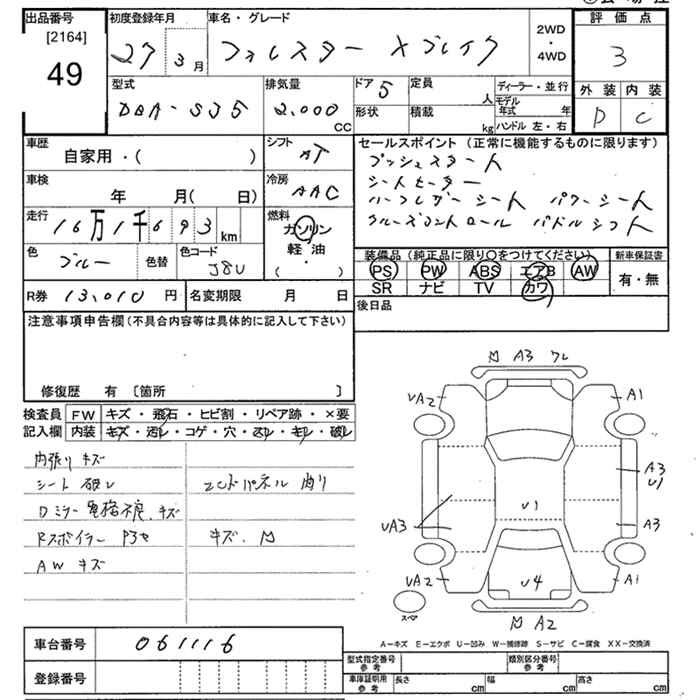 出品番号
[2164]
49
初度登録年月
27 3月
車名・グレード
フォレスター Xブレイク
2WD
・
4WD
評価点
3
外装 内装
D C
型式
DBA-SJ5
排気量
2,000
CC
ドア
5
形状
定員
人
積載
kg
ディーラー・並行
モデル年式 年
ハンドル 左・右
車歴
自家用・( )
シフト
AT
車検
年 月( 日)
冷房
AAC
走行
16万1千693 km
燃料
ガソリン
軽油
( ・ )
色
ブルー
色替
色コード
J8U
R券 13,010 円
名変期限 月 日
セールスポイント(正常に機能するものに限ります)
プッシュスタート
シートヒーター
ハーフレザーシート パワーシート
クルーズコントロール パドルシフト
装備品(純正品に限り○をつけてください)
PS PW ABS エアB AW
SR ナビ TV カワ
新車保証書
有・無
後日品
注意事項申告欄(不具合内容等は具体的に記入して下さい)
修復歴 有 〔箇所 〕
検査員
記入欄
FW キズ・飛石・ヒビ割・リペア跡・×要
内装 キズ・汚レ・コゲ・穴・スレ・キレ・破レ
内張り キズ
シート 破レ
Dミラー 電格不良、キズ
Rスポイラー
AW キズ
パネル
キズ、凹
凹 A3 ワレ
UA2 A1
A3
U1
U1
UA3 A3
UA2 U4 A1
スペア
凹 A2
A-キズ E-エクボ U-凹み W-補修跡 S-サビ C-腐食 XX-交換済
車台番号 061116
登録番号
型式指定番号
参考
類別区分番号
参考
車庫証明用
参考
長さ cm 幅 cm 高さ cm